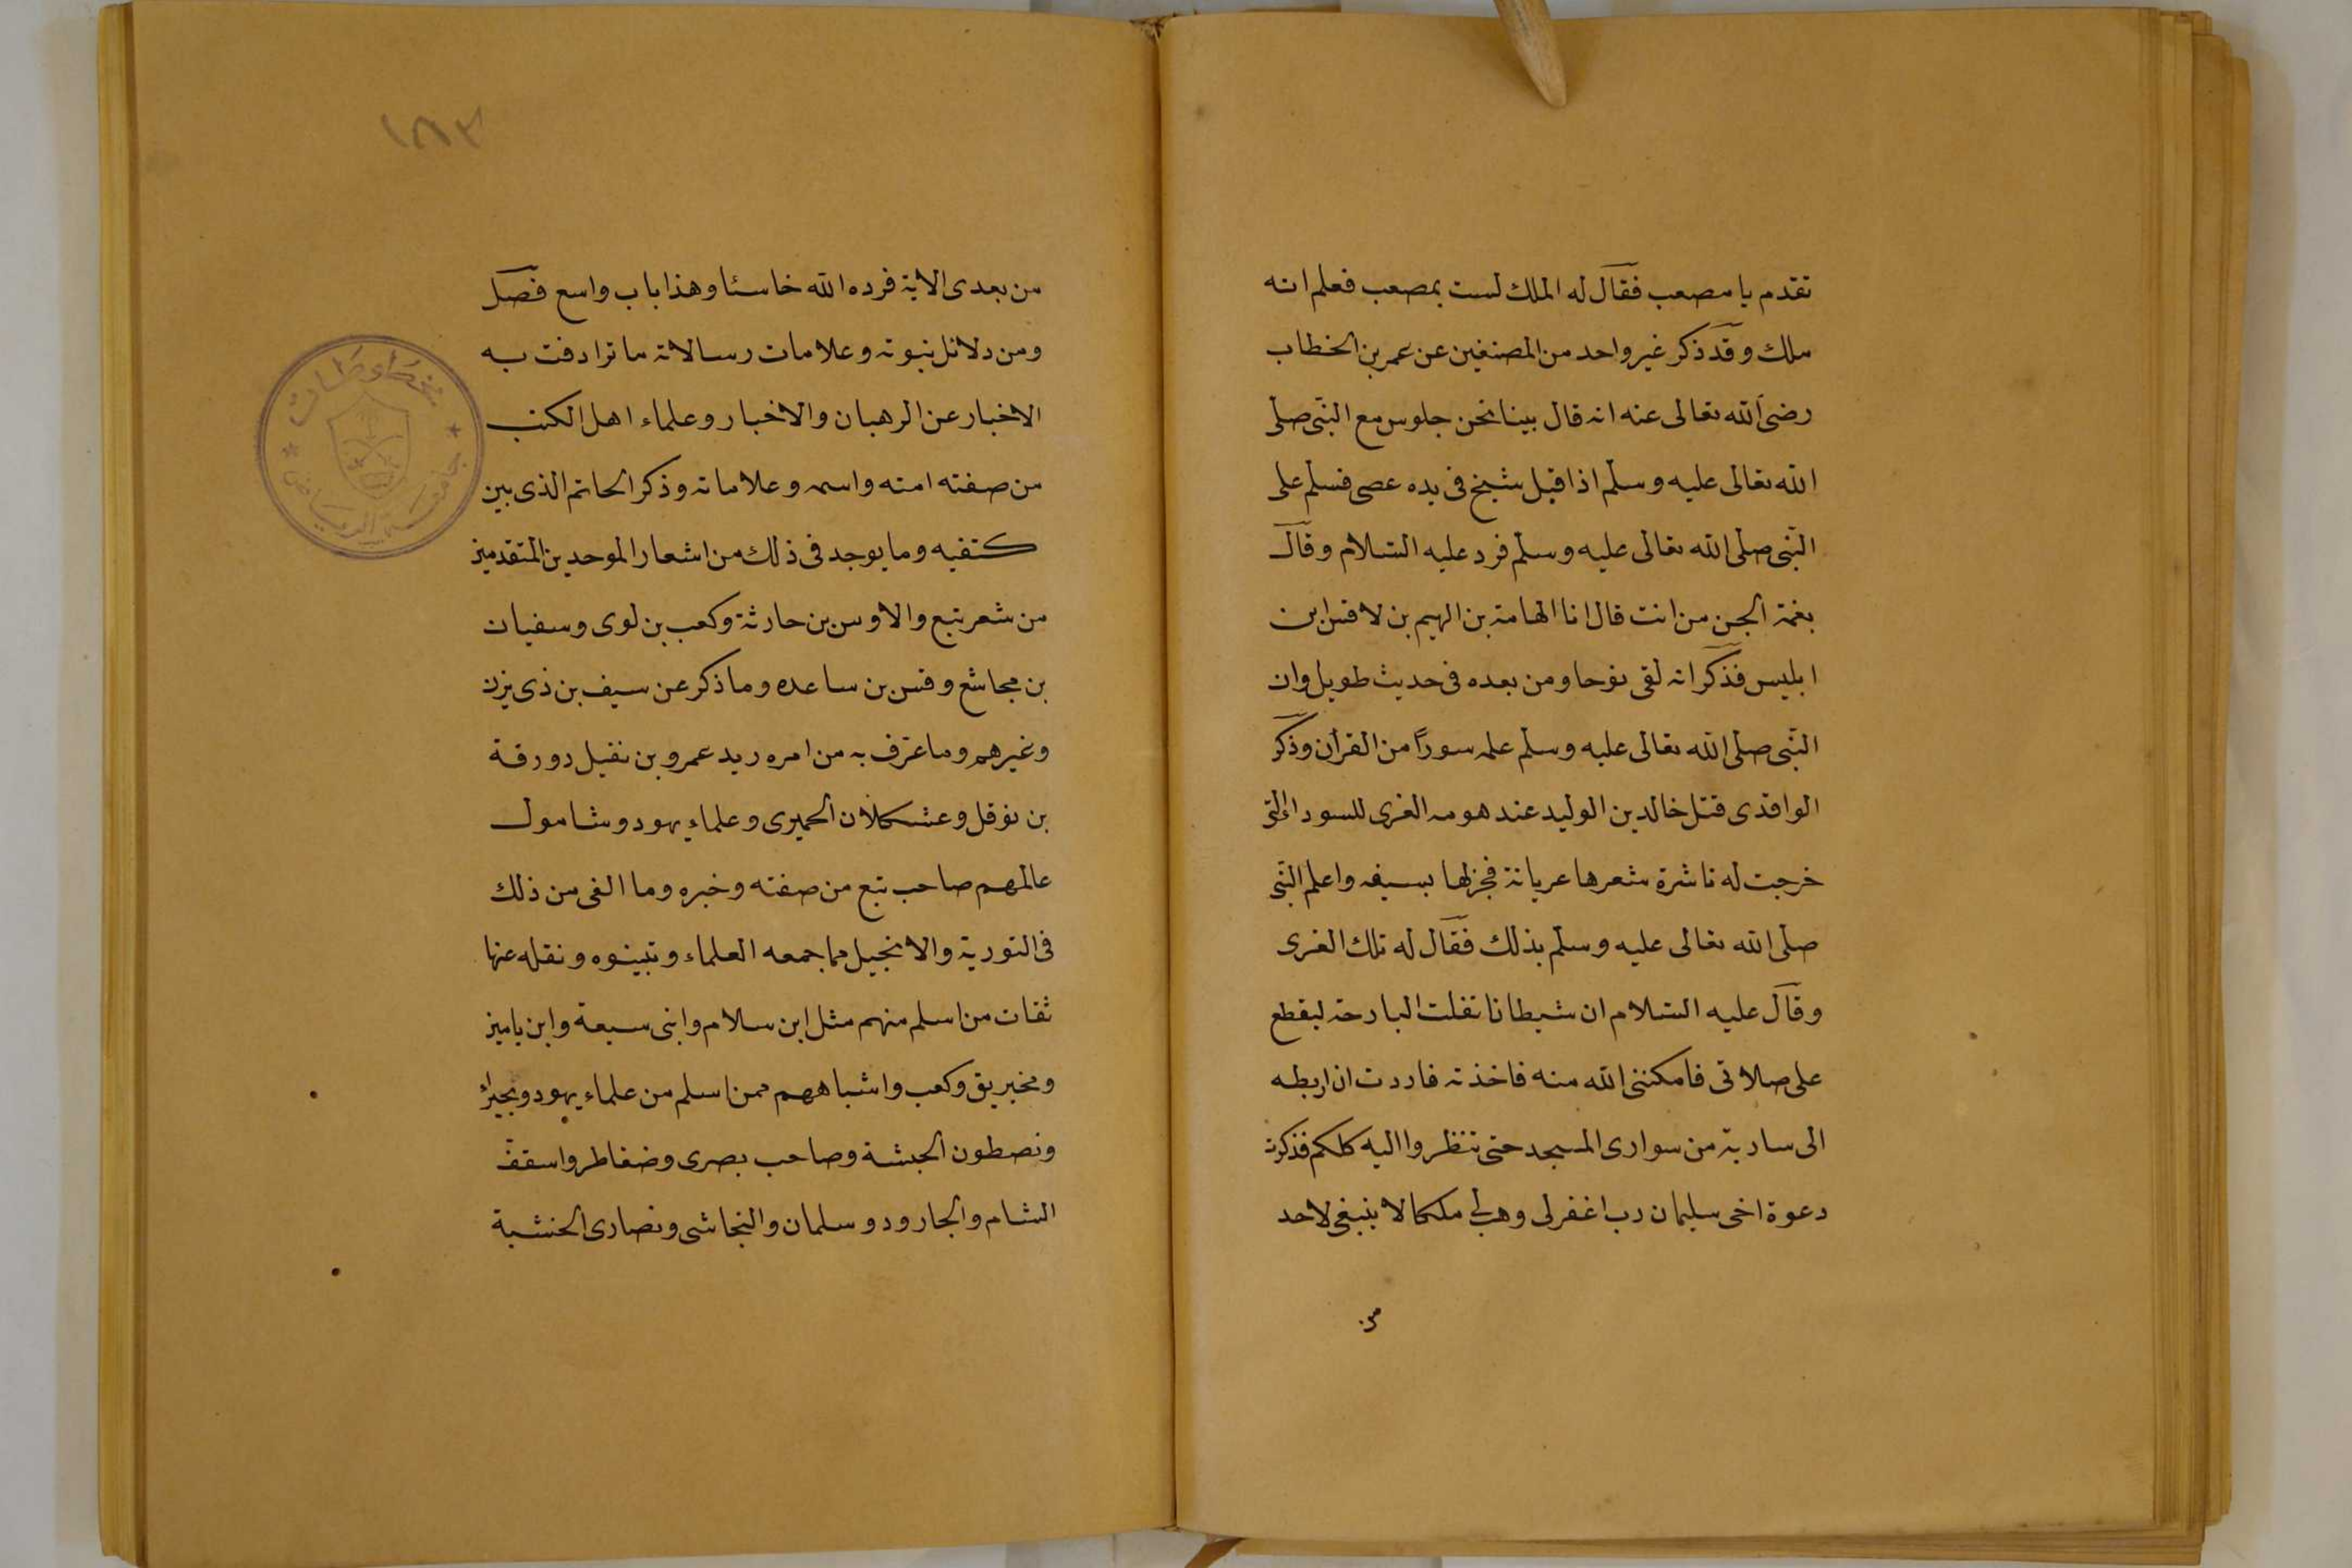 تقدم يا مصعب فقال له الملك لست بمصعب فعلم انه
ملك وقد ذكر غير واحد من المصنفين عن عمر بن الخطاب
رضى الله تعالى عنه انه قال بينا نحن جلوس مع النبى صلى
الله تعالى عليه وسلم اذا قبل شيخ فى يده عصى فسلم على
النبى صلى الله تعالى عليه وسلم فرد عليه السلام وقال
بغمة الجن من انت قال انا الهامة بن الهيم بن لاقس ابن
ابليس فذكر انه لقى نوحا ومن بعده فى حديث طويل وان
النبى صلى الله تعالى عليه وسلم علمه سورًا من القرأن وذكر
الواقدى قتل خالد بن الوليد عند هومه الغرى للسوداء التى
خرجت له ناشرة شعرها عريانة فجزلها بسيفه واعلم النبى
صلى الله تعالى عليه وسلم بذلك فقال له تلك الغرى
وقال عليه السلام ان شيطانا تفلت البارحة ليقطع
على صلاتى فامكننى الله منه فاخذته فاردت ان اربطه
الى سارية من سوارى المسجد حتى تنظروا اليه كلكم فذكرت
دعوة اخى سليمان رب اغفرلى وهب لى ملكا لا ينبغى لاحد
من
١٨٣
من بعدى الاية فرده الله خاسئا وهذا باب واسع فصل
ومن دلائل نبوته وعلامات رسالاته ما ترادفت به
الاخبار عن الرهبان والاخبار وعلماء اهل الكتب
من صفته امته واسمه وعلاماته وذكر الخاتم الذى بين
كتفيه وما يوجد فى ذلك من اشعار الموحدين المتقدمين
من شعر تبع والاوس بن حارثة وكعب بن لوى وسفيان
بن مجاشع وقس بن ساعده وما ذكر عن سيف بن ذى يزن
وغيرهم وما عرف به من امره ريد عمرو بن نفيل دورقة
بن نوفل وعشكلان الحميرى وعلماء يهود وشامول
عالمهم صاحب تبع من صفته وخبره وما الفى من ذلك
فى التورية والانجيل مما جمعه العلماء وتبينوه ونقله عنها
ثقات من اسلم منهم مثل ابن سلام وابنى سبعة وابن يامين
ومخيريق وكعب واشباههم ممن اسلم من علماء يهود وبحيرا
ونصطون الحبشة وصاحب بصرى وضغاطر واسقف
الشام والجارود وسلمان والنجاشى ونصارى الحنشبة
جامعة الرياض
مخطوطات